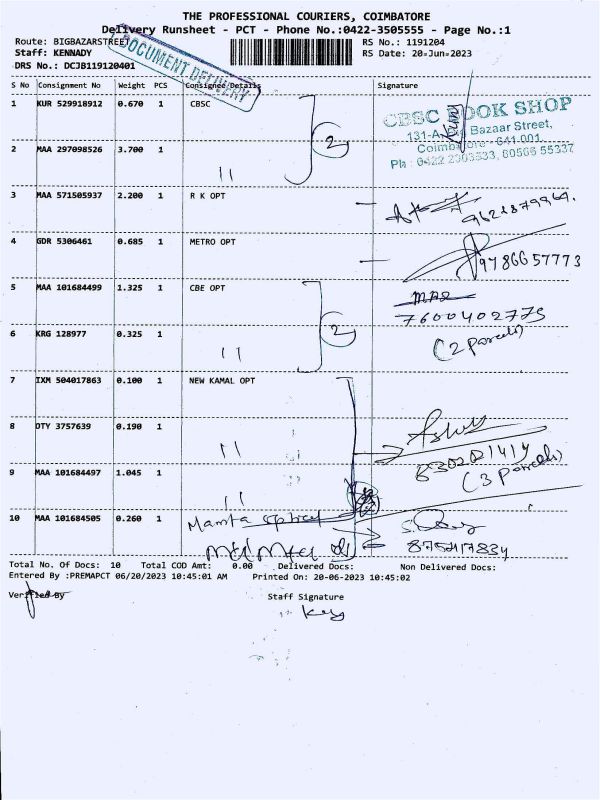 THE PROFESSIONAL COURIERS, COIMBATORE
Delivery Runsheet - PCT - Phone No.:0422-3505555 - Page No.:1
Route: BIGBAZARSTREET
RS No.: 1191204
Staff: KENNADY
RS Date: 20-Jun-2023
DRS No.: DCJB119120401
DOCUMENT DELIVERY
S No Consignment No Weight PCS Consignee/Details Signature
1 KUR 529918912 0.670 1 CBSC
CBSC BOOK SHOP
Bazaar Street,
Coimbatore - 641 001.
2
2 MAA 297098526 3.700 1 11
3 MAA 571505937 2.200 1 R K OPT
4 GDR 5306461 0.685 1 METRO OPT
9786657773
5 MAA 101684499 1.325 1 CBE OPT
7600402775
2
(2 parcels)
6 KRG 128977 0.325 1 11
7 IXM 504017863 0.100 1 NEW KAMAL OPT
8 OTY 3757639 0.190 1 11
9 MAA 101684497 1.045 1 11
(3 parcels)
10 MAA 101684505 0.260 1 Mamta optical
Total No. Of Docs: 10 Total COD Amt: 0.00 Delivered Docs: Non Delivered Docs:
Entered By :PREMAPCT 06/20/2023 10:45:01 AM Printed On: 20-06-2023 10:45:02
Verified By Staff Signature